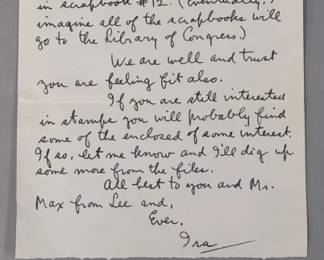 in scrapbook #12. (Eventually, I
imagine all of the scrapbooks will
go to the Library of Congress.)
We are well and trust
you are feeling fit also.
If you are still interested
in stamps you will probably find
some of the enclosed of some interest.
If so, let me know and I'll dig up
some more from the files.
All best to you and Mr.
Max from Lee and,
Ever,
Ira